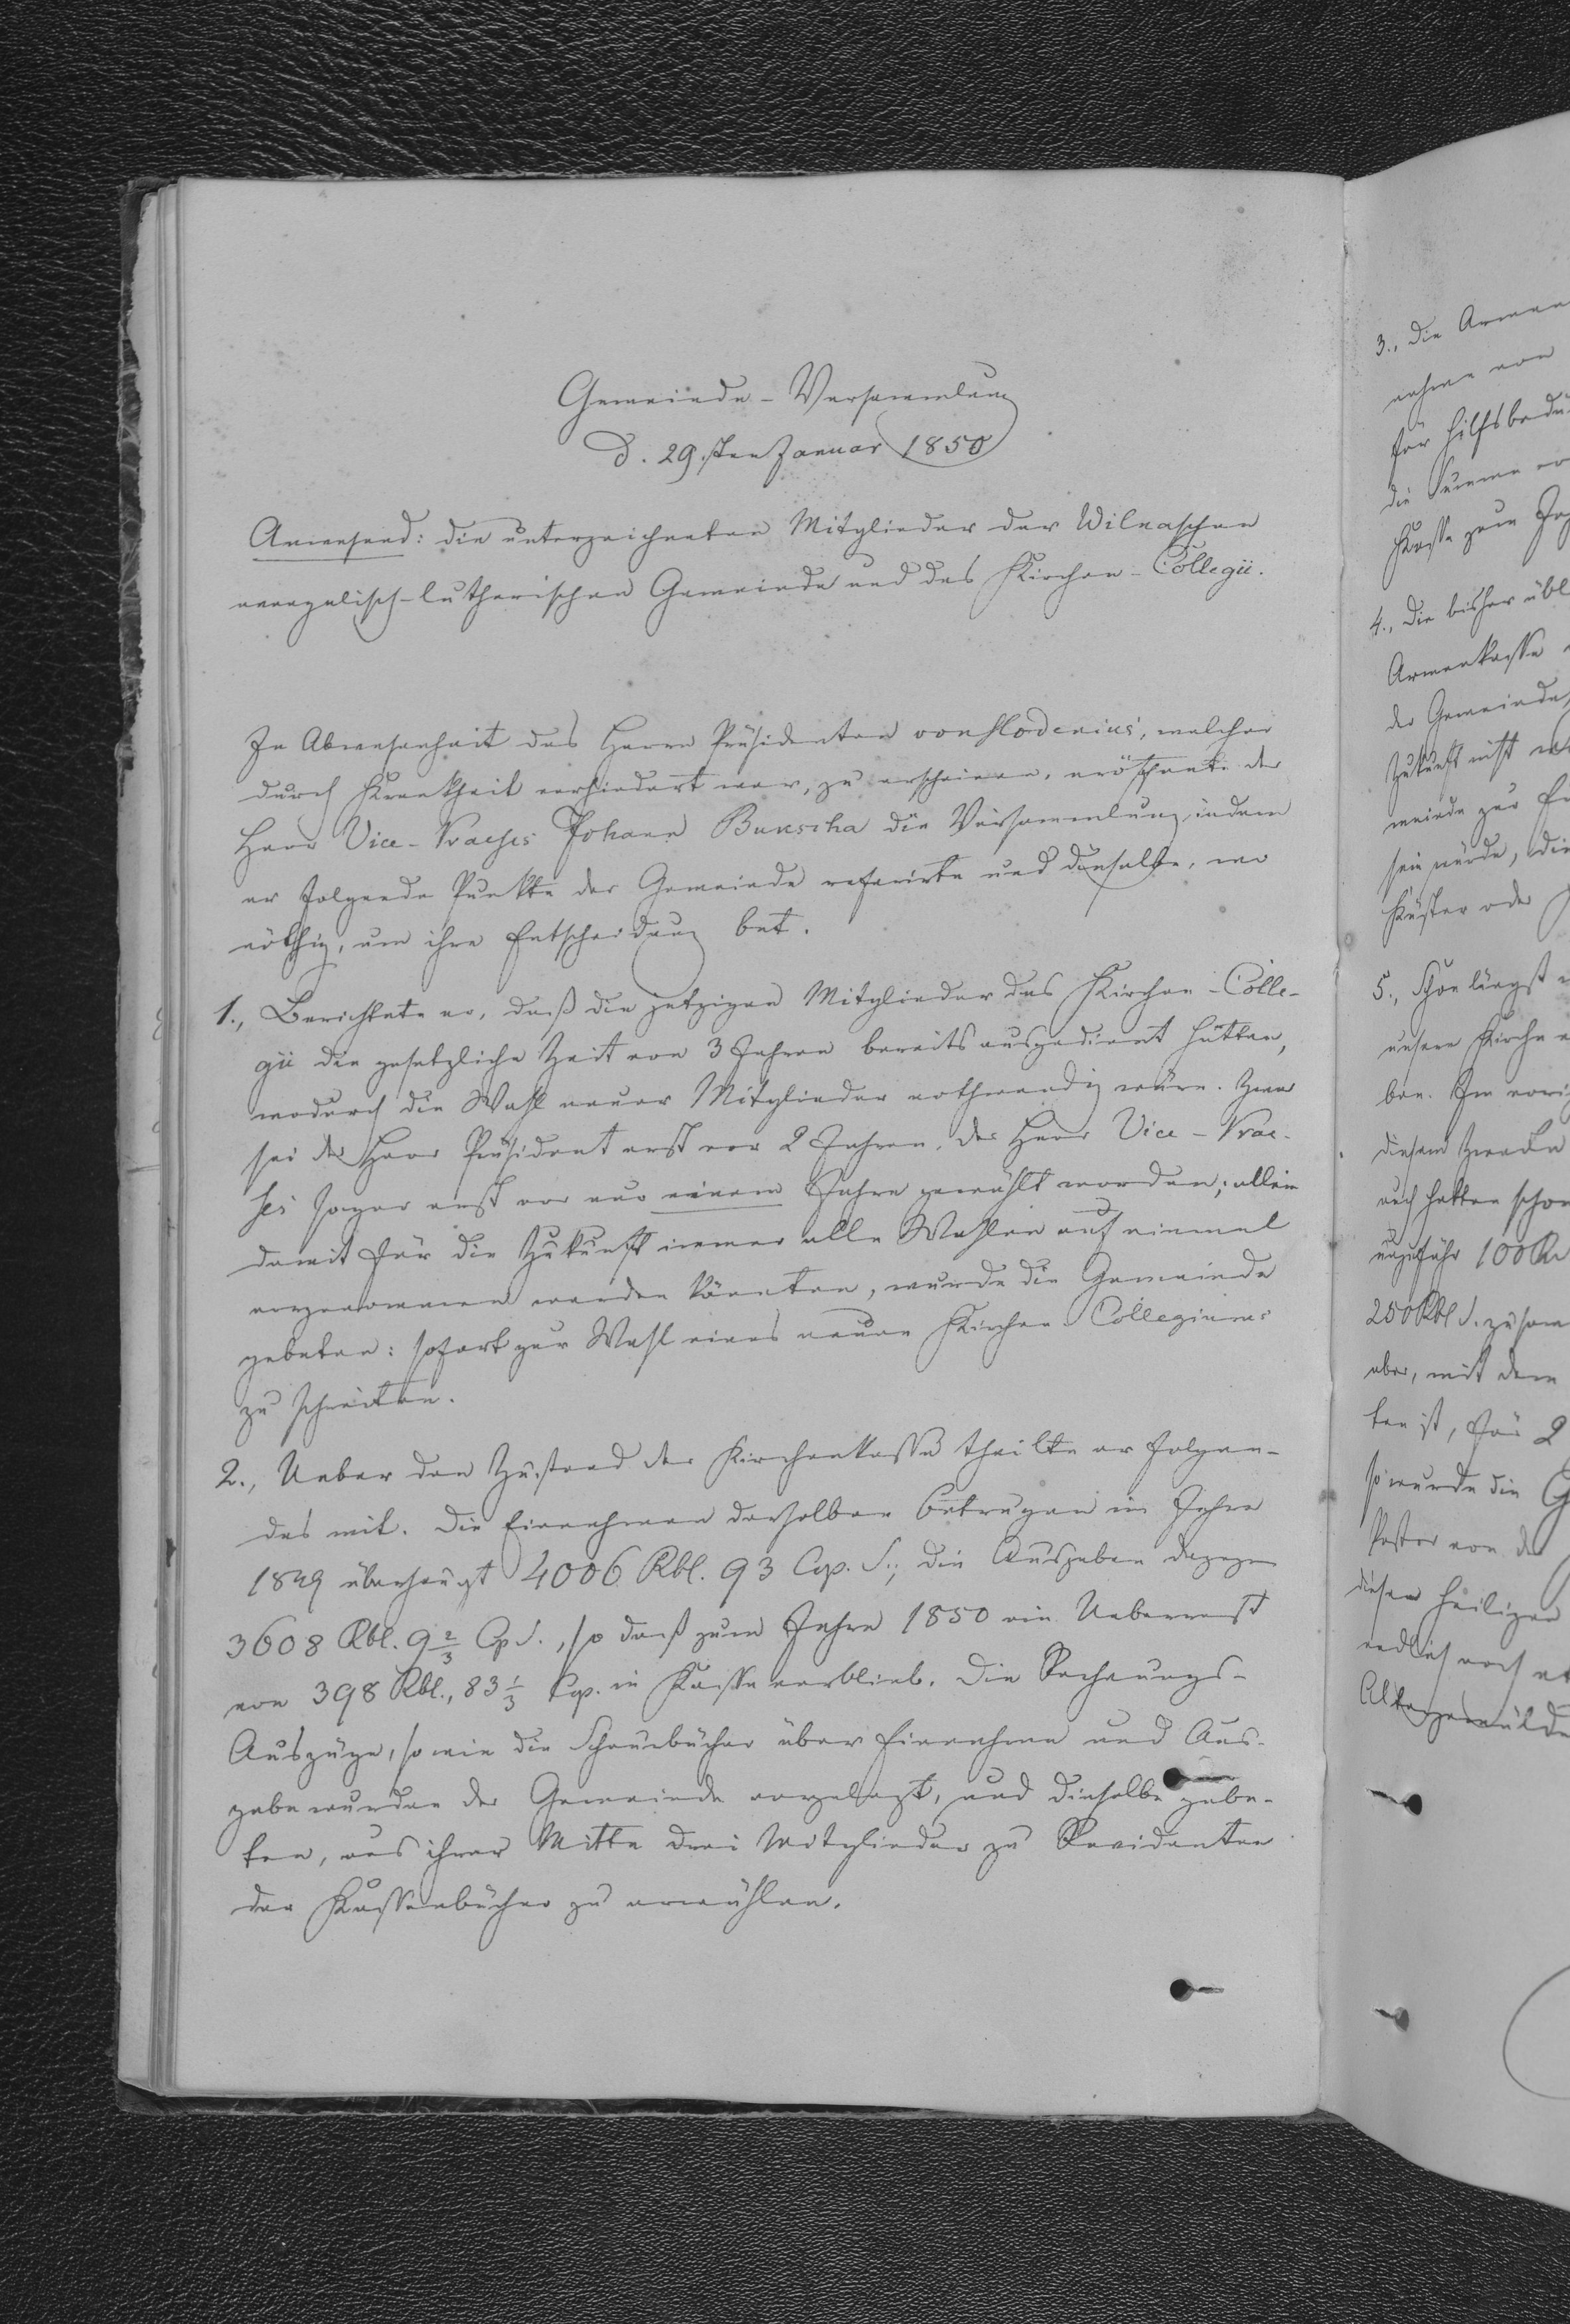 Gemeinde-Versammlung
d. 29.sten Januar 1850
Anwesend: die unterzeichneten Mitglieder der Wilnaschen
evangelisch-lutherischen Gemeinde und des Kirchen-Collegii.
In Abwesenheit des Herrn Präsidenten von Hodenius, welcher
durch Krankheit verhindert war, zu erscheinen, eröffnete der
Herr Vice-Praeses Johann Bunscha die Versammlung, indem
er folgende Punkte der Gemeinde referirte und dieselbe, wo
nöthig, um ihre Entscheidung bat.
1., Berichtete er, daß die jetzigen Mitglieder des Kirchen-Colle-
gii die gesetzliche Zeit von 3 Jahren bereits ausgedient hätten,
wodurch die Wahl neuer Mitglieder nothwendig wäre. Zwar
sei der Herr Präsident erst vor 2 Jahren, der Herr Vice-Prae-
ses sogar erst vor nur einem Jahre gewählt worden; allein
damit für die Zukunft immer alle Wahlen auf einmal
vorgenommen werden könnten, wurde die Gemeinde
gebeten: sofort zur Wahl eines neuen Kirchen Collegiums
zu schreiten.
2., Ueber den Zustand der Kirchenkasse theilte er Folgen-
des mit. Die Einnahmen derselben betrugen im Jahre
1849 überhaupt 4006 Rbl. 93 Cop. S.; die Ausgaben dagegen
3608 Rbl. 9 2/3 Cp S., so daß zum Jahre 1850 ein Ueberrest
von 398 Rbl., 83 1/3 Cop. in Kasse verblieb. Die Rechnungs-
Auszüge, so wie die Schnurbücher über Einnahme und Aus-
gabe wurden der Gemeinde vorgelegt, und dieselbe gebe-
ten, aus ihrer Mitte drei Mitglieder zu Revidenten
der Kassenbücher zu erwählen.
3., Die Armen
nahme von
für hilfsbedü
die Summe
Kasse zum Ja
4., Die bisher übl
Armenkasse
der Gemeinde,
Zukunft nicht
meinde zur
sein würde, die
Küster oder
5., Schon längst
unsere Kirche
ben. Im vori
diesem Zwecke
auch hatten schon
ungefähr 100 R
250 Rbl S. zusam
aber, mit dem
ten ist, für 2
so wurde die G
Pastor von d
diesen heiligen
endlich noch
Altargemälde